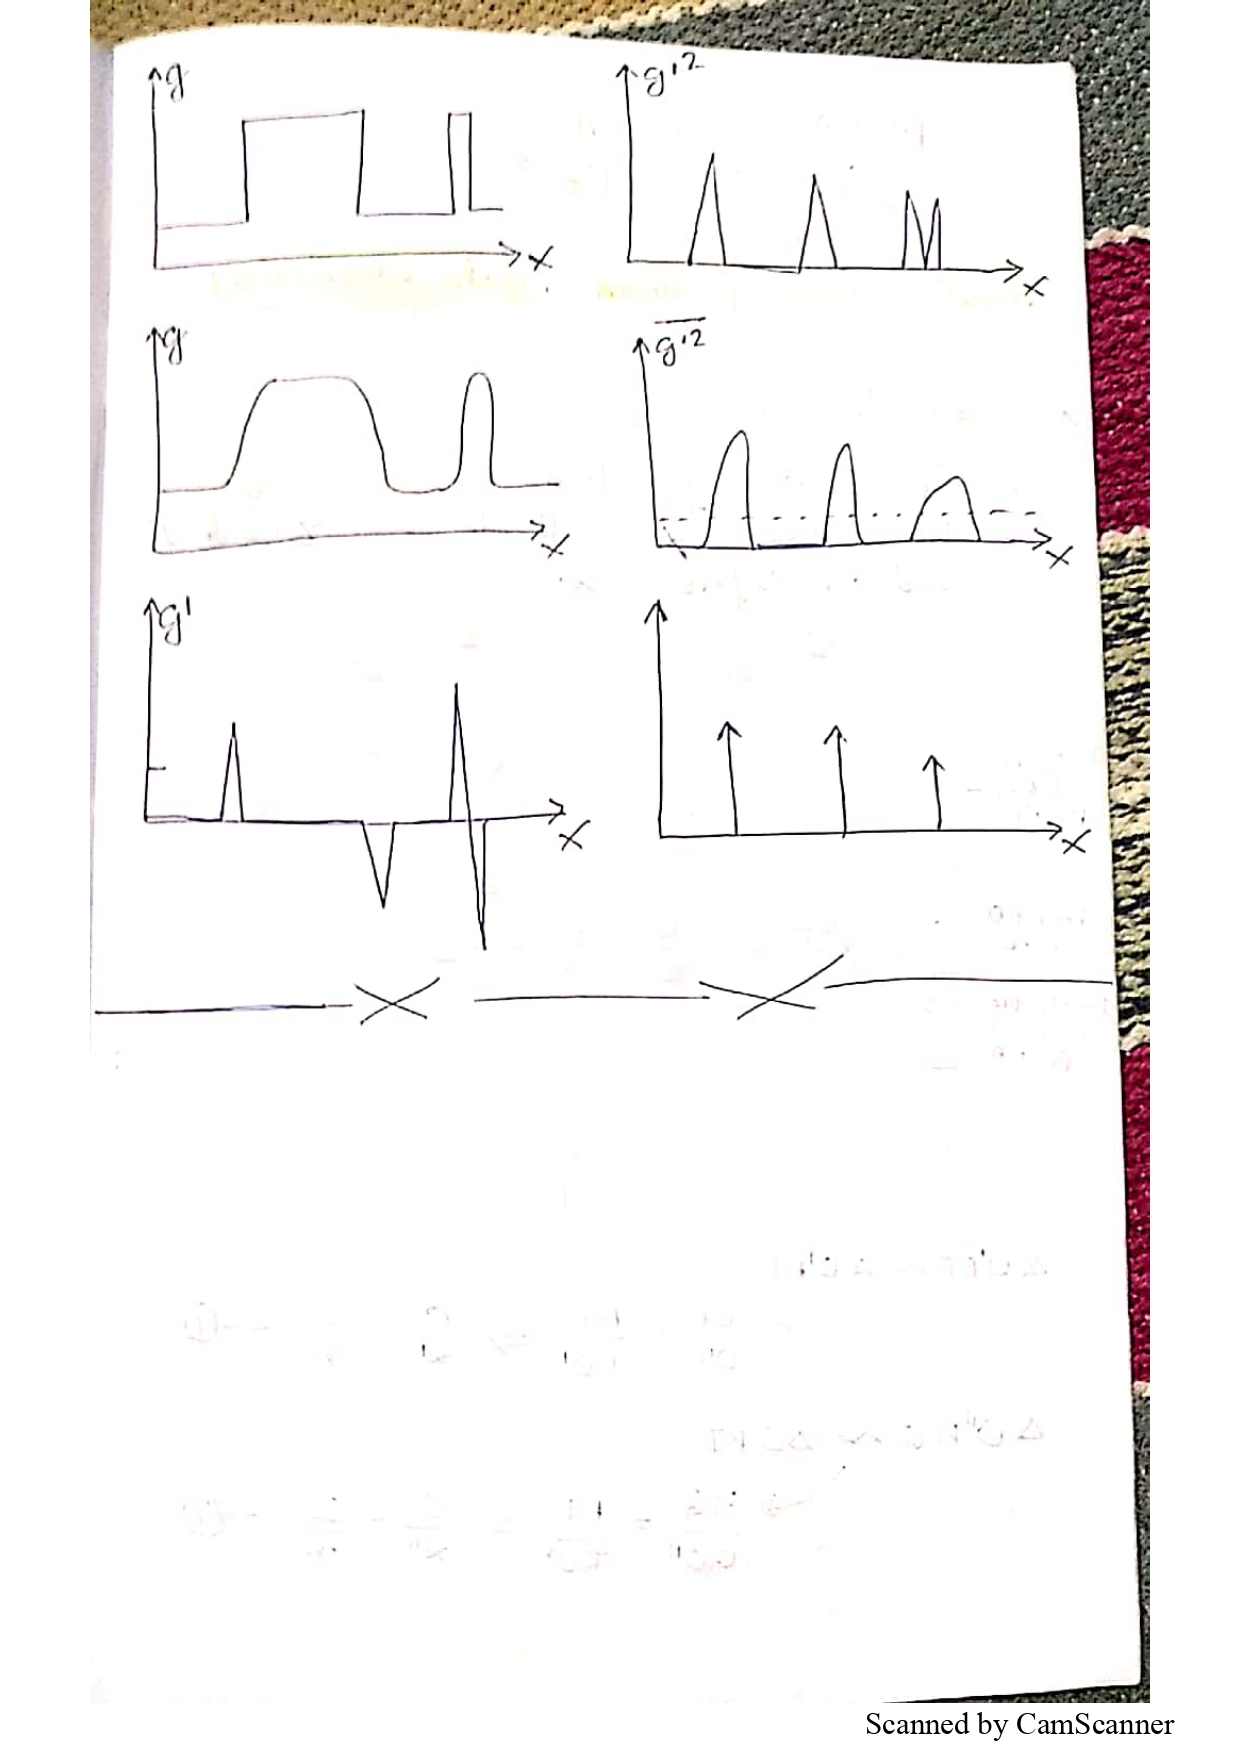 g
x
g'²
x
g
x
g'²
x
g'
x
x
Scanned by CamScanner